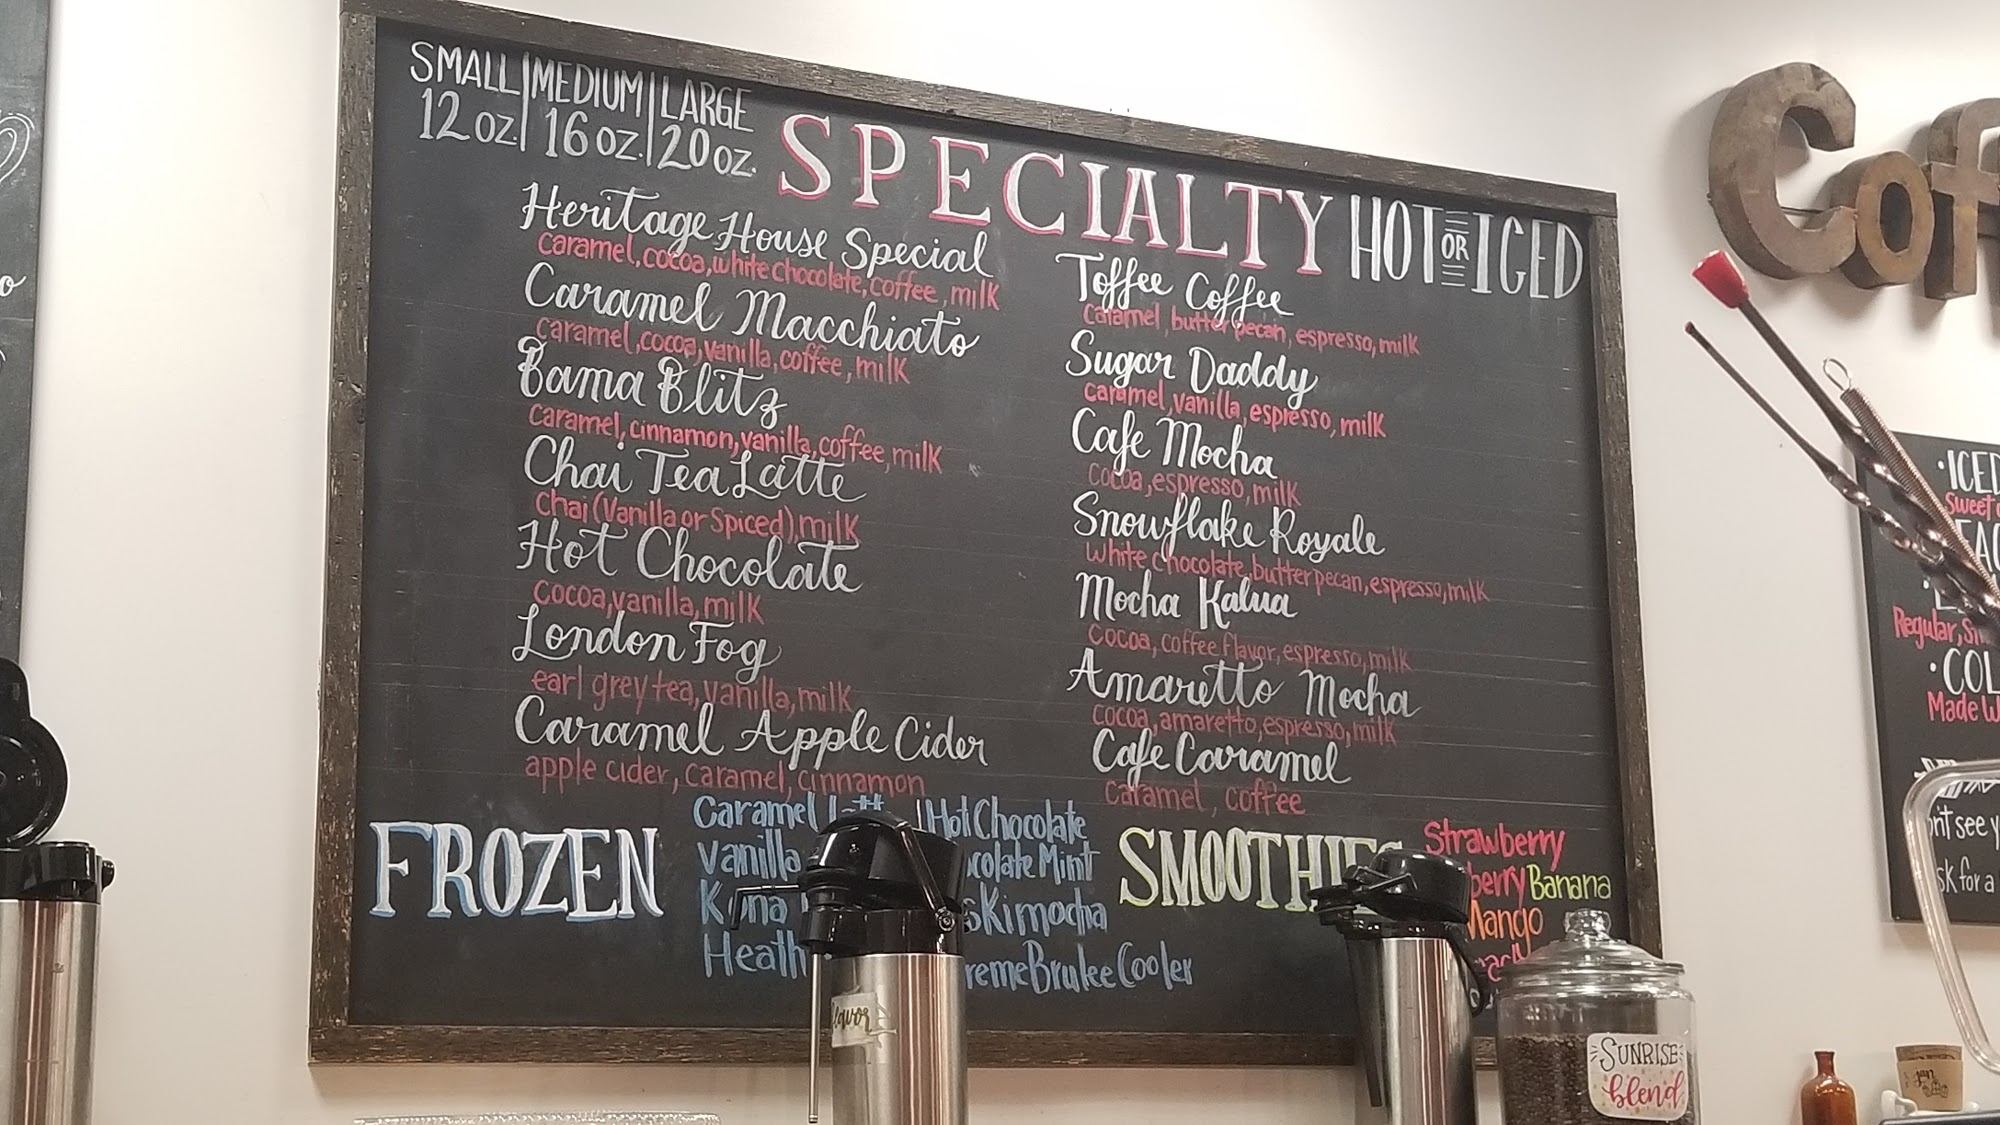 SMALL | MEDIUM | LARGE
12 oz. | 16 oz. | 20 oz.
SPECIALTY HOT OR ICED
Heritage House Special
caramel, cocoa, white chocolate, coffee, milk
Caramel Macchiato
caramel, cocoa, vanilla, coffee, milk
Bama Blitz
caramel, cinnamon, vanilla, coffee, milk
Chai Tea Latte
Chai (Vanilla or Spiced), milk
Hot Chocolate
Cocoa, vanilla, milk
London Fog
earl grey tea, vanilla, milk
Caramel Apple Cider
apple cider, caramel, cinnamon
Toffee Coffee
caramel, butter pecan, espresso, milk
Sugar Daddy
caramel, vanilla, espresso, milk
Cafe Mocha
cocoa, espresso, milk
Snowflake Royale
white chocolate, butter pecan, espresso, milk
Mocha Kalua
cocoa, coffee flavor, espresso, milk
Amaretto Mocha
cocoa, amaretto, espresso, milk
Cafe Caramel
caramel, coffee
FROZEN
Caramel Hot Chocolate
Vanilla Mint
Kona
Heath Brulee Cooler
SMOOTHIES
Strawberry
Banana
Mango
SUNRISE
blend
ICED
Sweet
Regular,
Made